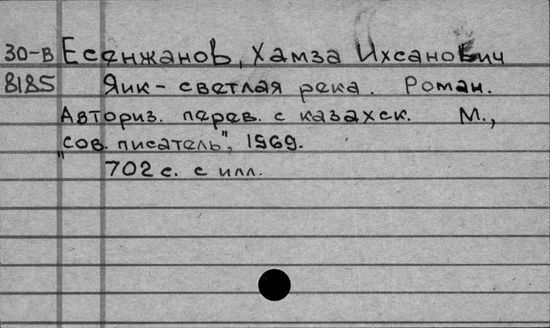 30-В Есенжанов, Хамза Ихсанович
8185 Яик - светлая река. Роман.
Авториз. перев. с казахск. М.,
"Сов. писатель", 1969.
702 с. с илл.